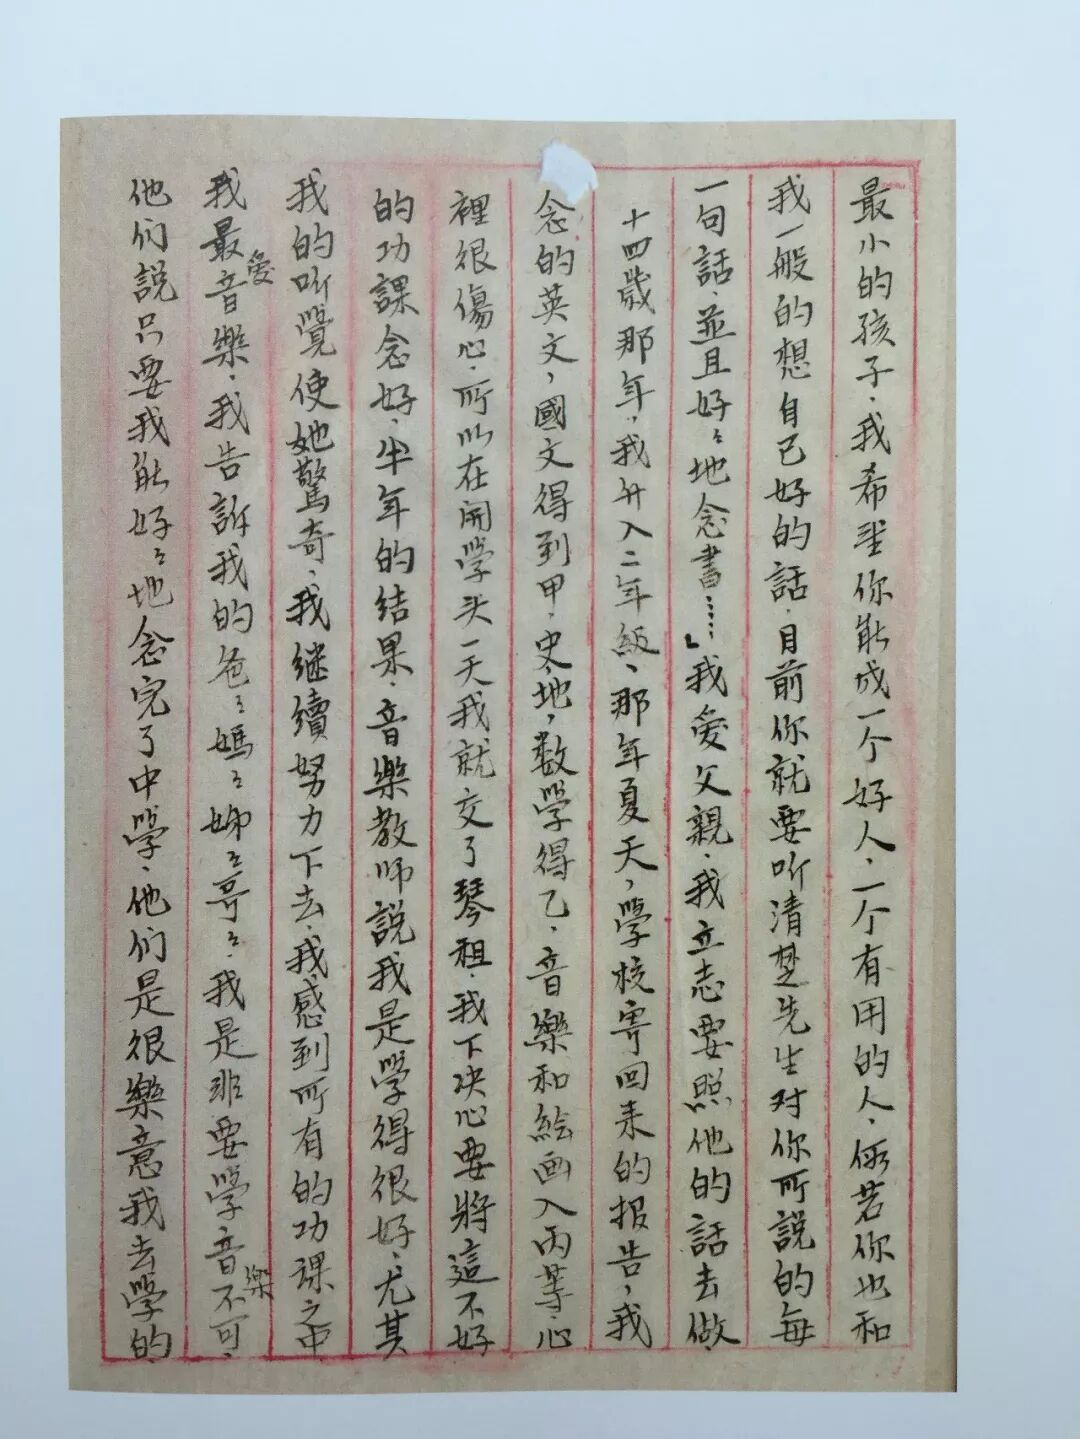 最小的孩子，我希望你能成一个好人，一个有用的人，假若你也和
我一般的想自己好的話，目前你就要听清楚先生对你所說的每
一句話，並且好〻地念書……」我爱父親，我立志要照他的話去做，
十四歲那年，我升入二年級，那年夏天，學校寄回来的报告，我
念的英文，國文得到甲，史、地，数學得乙，音樂和絵画入丙等，心
裡很傷心，所以在開學头一天我就交了琴租，我下决心要將這不好
的功課念好，半年的结果，音樂教师説我是學得很好，尤其
我的听覺使她驚奇，我继續努力下去，我感到所有的功课之中
我最爱音樂，我告訴我的爸〻媽〻姊〻哥〻，我是非要學音樂不可，
他们説只要我能好〻地念完了中學，他们是很樂意我去學的，